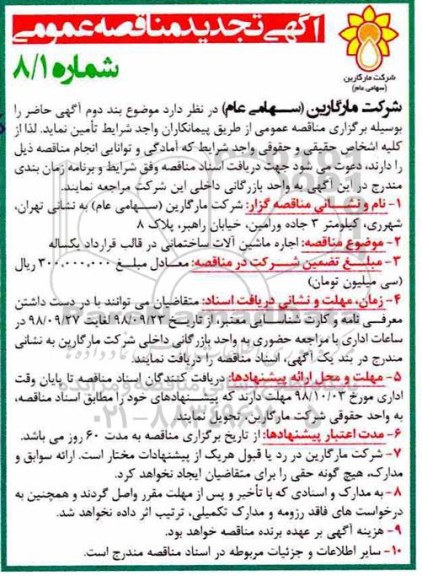 آگهی تجدید مناقصه عمومی
شماره ۸/۱
شرکت مارگارین
(سهامی عام)
شرکت مارگارین (سهامی عام) در نظر دارد موضوع بند دوم آگهی حاضر را
بوسیله برگزاری مناقصه عمومی از طریق پیمانکاران واجد شرایط تأمین نماید. لذا از
کلیه اشخاص حقیقی و حقوقی واجد شرایط که آمادگی و توانایی انجام مناقصه ذیل
را دارند، دعوت می شود جهت دریافت اسناد مناقصه وفق شرایط و برنامه زمان بندی
مندرج در این آگهی به واحد بازرگانی داخلی این شرکت مراجعه نمایند.
۱- نام و نشانی مناقصه گزار: شرکت مارگارین (سهامی عام) به نشانی تهران،
شهرری، کیلومتر ۳ جاده ورامین، خیابان راهبر، پلاک ۸
۲- موضوع مناقصه: اجاره ماشین آلات ساختمانی در قالب قرارداد یکساله
۳- مبلغ تضمین شرکت در مناقصه: معادل مبلغ ۳۰۰,۰۰۰,۰۰۰ ریال
(سی میلیون تومان)
۴- زمان، مهلت و نشانی دریافت اسناد: متقاضیان می توانند با در دست داشتن
معرفی نامه و کارت شناسایی معتبر، از تاریخ ۹۸/۰۹/۲۳ لغایت ۹۸/۰۹/۲۷ در
ساعات اداری با مراجعه حضوری به واحد بازرگانی داخلی شرکت مارگارین به نشانی
مندرج در بند یک آگهی، اسناد مناقصه را دریافت نمایند.
۵- مهلت و محل ارائه پیشنهادها: دریافت کنندگان اسناد مناقصه تا پایان وقت
اداری مورخ ۹۸/۱۰/۰۳ مهلت دارند که پیشنهادهای خود را مطابق اسناد مناقصه،
به واحد حقوقی شرکت مارگارین، تحویل نمایند.
۶- مدت اعتبار پیشنهادها: از تاریخ برگزاری مناقصه به مدت ۶۰ روز می باشد.
۷- شرکت مارگارین در رد یا قبول هریک از پیشنهادات مختار است. ارائه سوابق و
مدارک، هیچ گونه حقی را برای متقاضیان ایجاد نخواهد کرد.
۸- به مدارک و اسنادی که با تأخیر و پس از مهلت مقرر واصل گردند و همچنین به
درخواست های فاقد رزومه و مدارک تکمیلی، ترتیب اثر داده نخواهد شد.
۹- هزینه آگهی بر عهده برنده مناقصه خواهد بود.
۱۰- سایر اطلاعات و جزئیات مربوطه در اسناد مناقصه مندرج است.